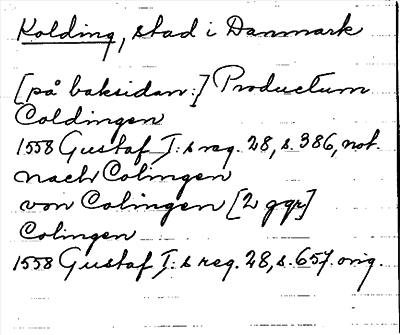 Kolding, stad i Danmark
[på baksidan:] Productum
Coldingen
1558 Gustaf I:s reg. 28, s. 386, not.
nach Colingen
von Colingen [2 ggr]
Colingen
1558 Gustaf I:s reg. 28, s. 657. orig.